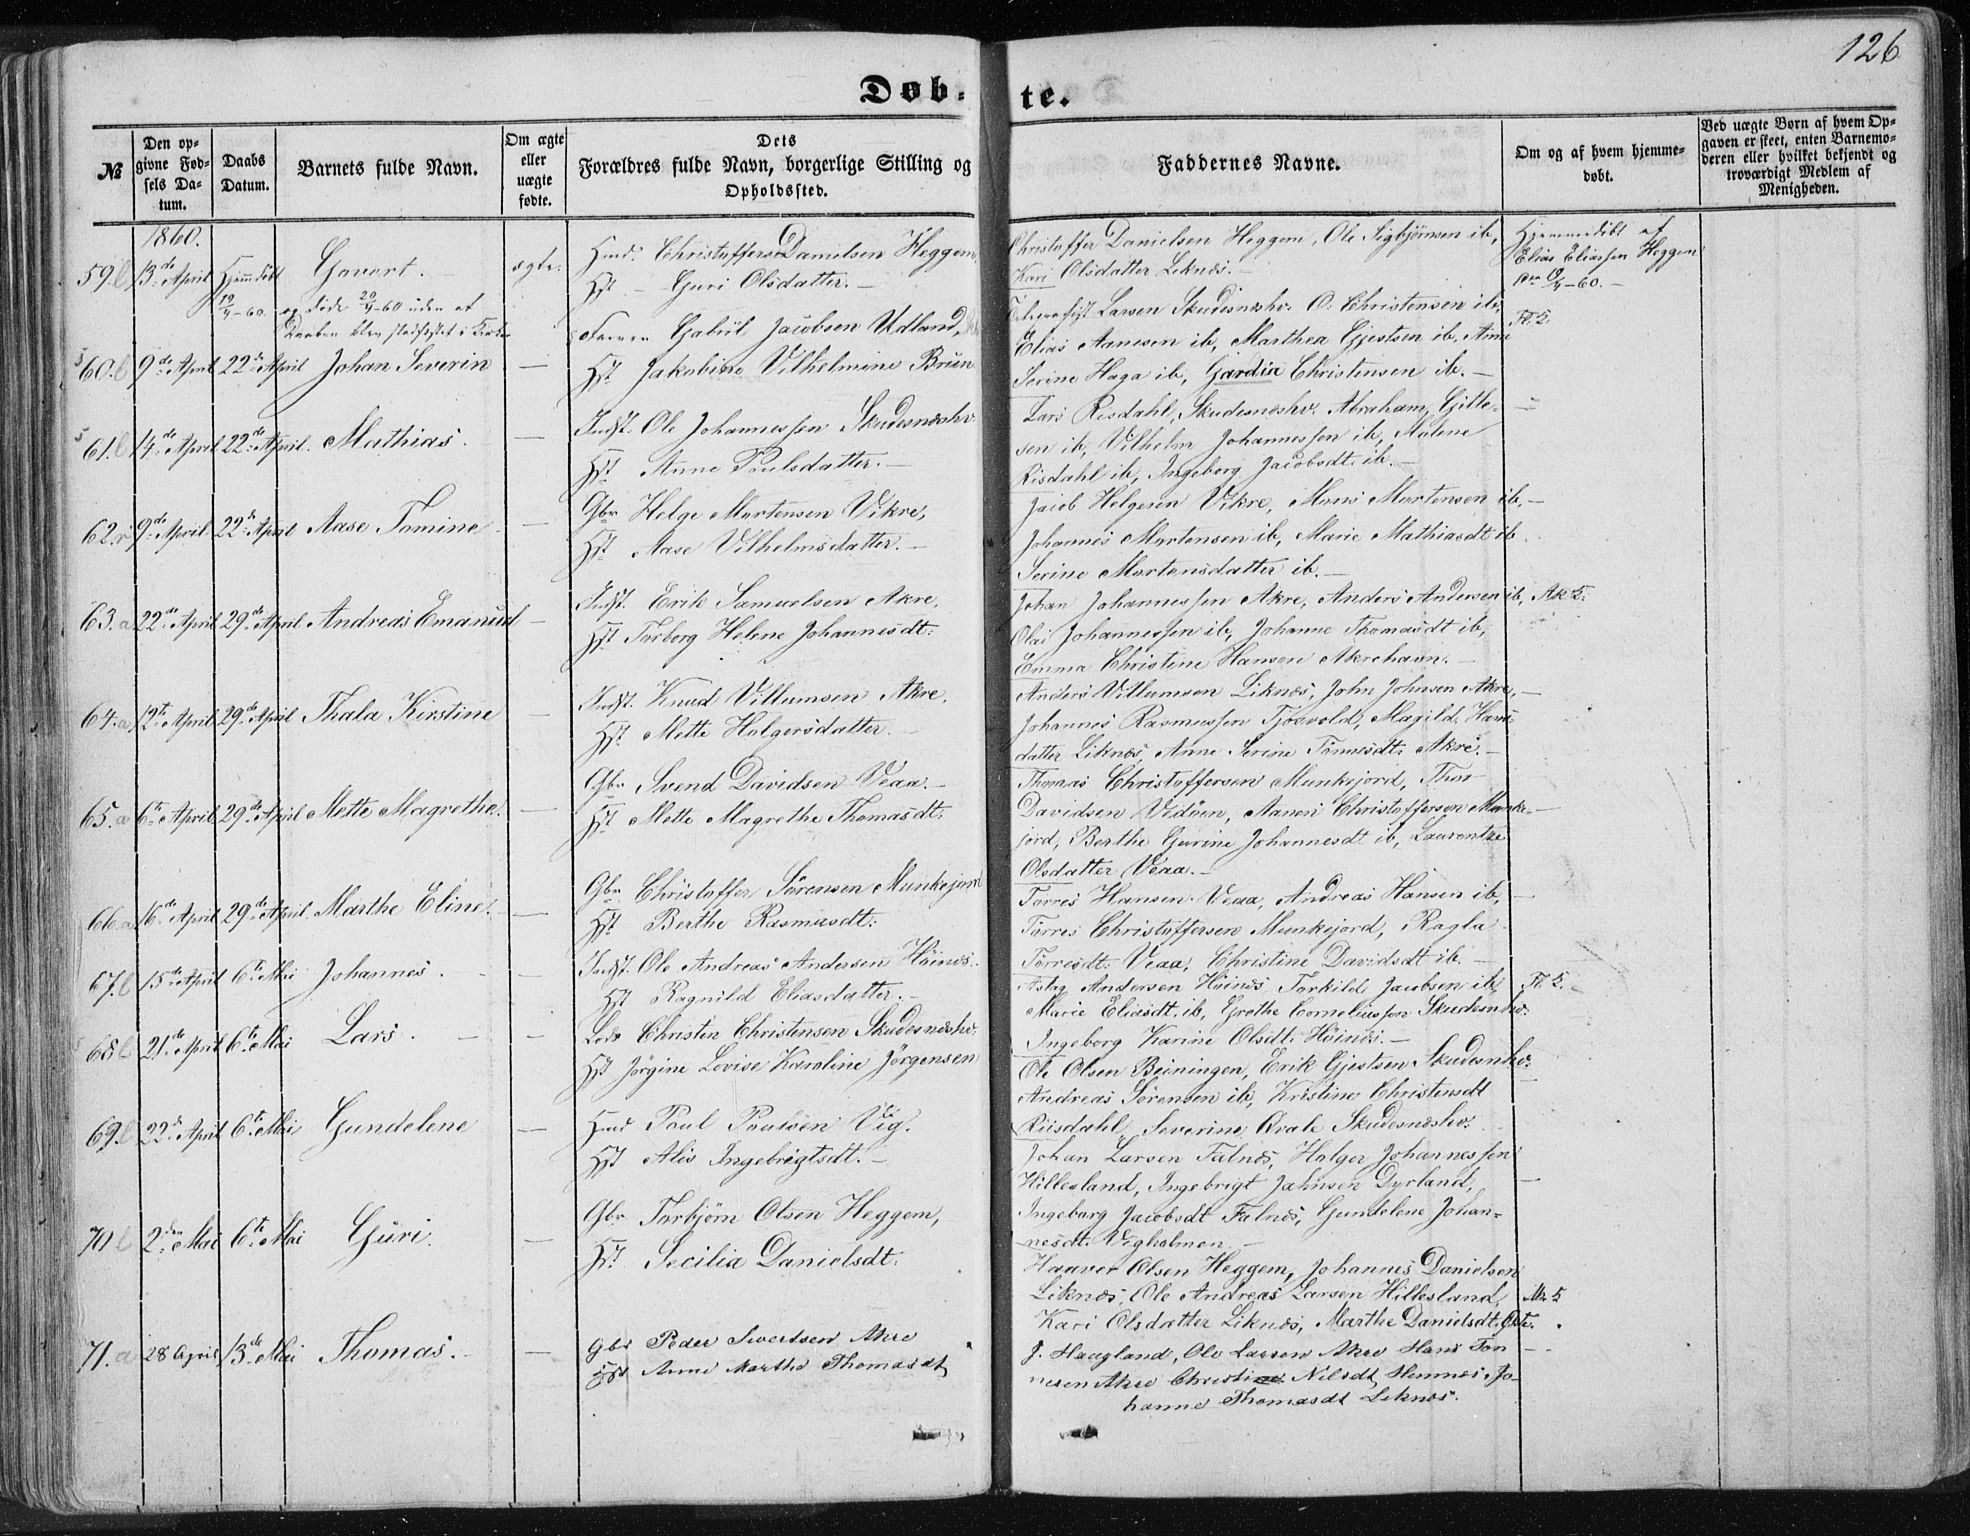 126
Døb-
te.
№
Den op-
givne Fød-
sels Da-
tum.
Daabs
Datum.
Barnets fulde Navn.
Om ægte
eller
uægte
fødte.
Dets
Forældres fulde Navn, borgerlige Stilling og
Opholdssted.
Faddernes Navne.
Om og af hvem hjemme-
døbt.
Ved uægte Børn af hvem Op-
gaven er skeet, enten Barnemo-
deren eller hvilket bekjendt og
troværdigt Medlem af
Menigheden.
1860.
59. 13de April Hjemdøbt Govert. ægte. Hmd. Christoffer Danielsen Heggem,
19/4-60. og døde 20/4-60 uden at Hst Guri Olsdatter.
Daaben blev stadfæstet i Kirken
Christoffer Danielsen Heggem, Ole Sigbjørnsen ib,
Kari Olsdatter Liknæs.
Hjemmedøbt af
Elias Eliassen Heggem
60. 9de April 22de April Johan Severin — Gabriel Jacobsen Udland,
Hst Jakobine Vilhelmine Bruun
Larsen Skudesnæshv. O. Christensen ib,
Elias Aanesen ib, Marthea Gjestsen ib, Anne
Serine Haga ib, Gardia Christensen ib.
61. 14de April 22de April. Mathias. — Indst. Ole Johannessen Skudesnæshv.
Hst Anne Poulsdatter.
Lars Risdahl, Skudesnæshv. Abraham Gitle-
sen ib, Vilhelm Johannessen ib, Malene
Risdahl ib, Ingeborg Jacobsdt. ib.
62. 9de April 22de April Aase Tomine — Gbr Helge Mortensen Vikre,
Hst Aase Vilhelmsdatter.
Jacob Helgesen Vikre, Mons Mortensen ib,
Johannes Mortensen ib, Marie Mathiasdt ib
Serine Mortensdatter ib.
63. a 22de April 29de April Andreas Emanuel — Indst. Erik Samuelsen Akre.
Hst Torborg Helene Johannesdt.
Johan Johannessen Akre, Anders Andersen ib,
Olai Johannessen ib, Johanne Thomasdt ib,
Emma Christine Hansen Akrehavn.
64. a 12te April 29de April Thala Kirstine — Indst. Knud Villumsen Akre.
Hst. Mette Holgersdatter.
Anders Villumsen Liknæs, John Johnsen Akre,
Johannes Rasmussen Tjøsvold, Magild Hans-
datter Liknæs, Anne Serine Tønnesdt. Akre.
65. a 6te April 29de April Mette Magrethe. — Gbr Svend Davidsen Veaa.
Hst Mette Magrethe Thomasdt.
Thomas Christoffersen Munkejord, Thor
Davidsen Vedøen, Aanen Christoffersen Munke-
jord, Berthe Gurine Johannesdt ib, Laurentze
Olsdatter Veaa.
66. a 16de April 29de April. Marthe Eline. — Gbr Christoffer Sørensen Munkejord
Hst Berthe Rasmusdt.
Tørres Hansen Veaa, Andreas Hansen ib,
Tørres Christoffersen Munkejord, Ragla
Tørresdt. Veaa, Christine Davidsdt ib.
67. 15de April 6te Mai Johannes. — Indst. Ole Andreas Andersen Høines.
Hst Ragnild Eliasdatter.
Aslag Andersen Høines, Torkild Jacobsen ib,
Marie Eliasdt. ib, Grethe Corneliussen Skudesnhv.
Ingeborg Karine Olsdt. Høines.
68 21de April 6te Mai Lars. — Lods Christen Christensen Skudesnæshv.
Hst Jørgine Lovise Karoline Jørgensen
Ole Olsen Beiningen, Erik Gjestsen Skudesnhv.
Andreas Sørensen ib, Kristine Christensdt
Riisdahl, Severine Qvale Skudesnæshv.
69. 22de April 6te Mai Gundelene — Hmd Poul Poulsen Vig.
Hst Alis Ingebrigtsdt.
Johan Larsen Falnæs, Holger Johannessen
Hillesland, Ingebrigt Jahnsen Dyrland,
Ingeborg Jacobsdt Falnæs, Gundelene Johan-
nesdt. Vigholmen.
70 2den Mai 6te Mai Guri. — Gbr Torbjørn Olsen Heggem,
Hst. Secilia Danielsdt.
Haaver Olsen Heggem, Johannes Danielsen
Liknæs, Ole Andreas Larsen Hillesland,
Kari Olsdatter Liknæs, Marthe Danielsdt.
71. a 28 April 13de Mai Thomas. — Gbr Peder Sivertsen Akre
Hst Anne Marthe Thomasdt
J. Haugland, Ole Larsen Akre Hans Ton
nesen Akre Christine Nilsdt Hemnes, Jo-
hanne Thomasdt Liknes.